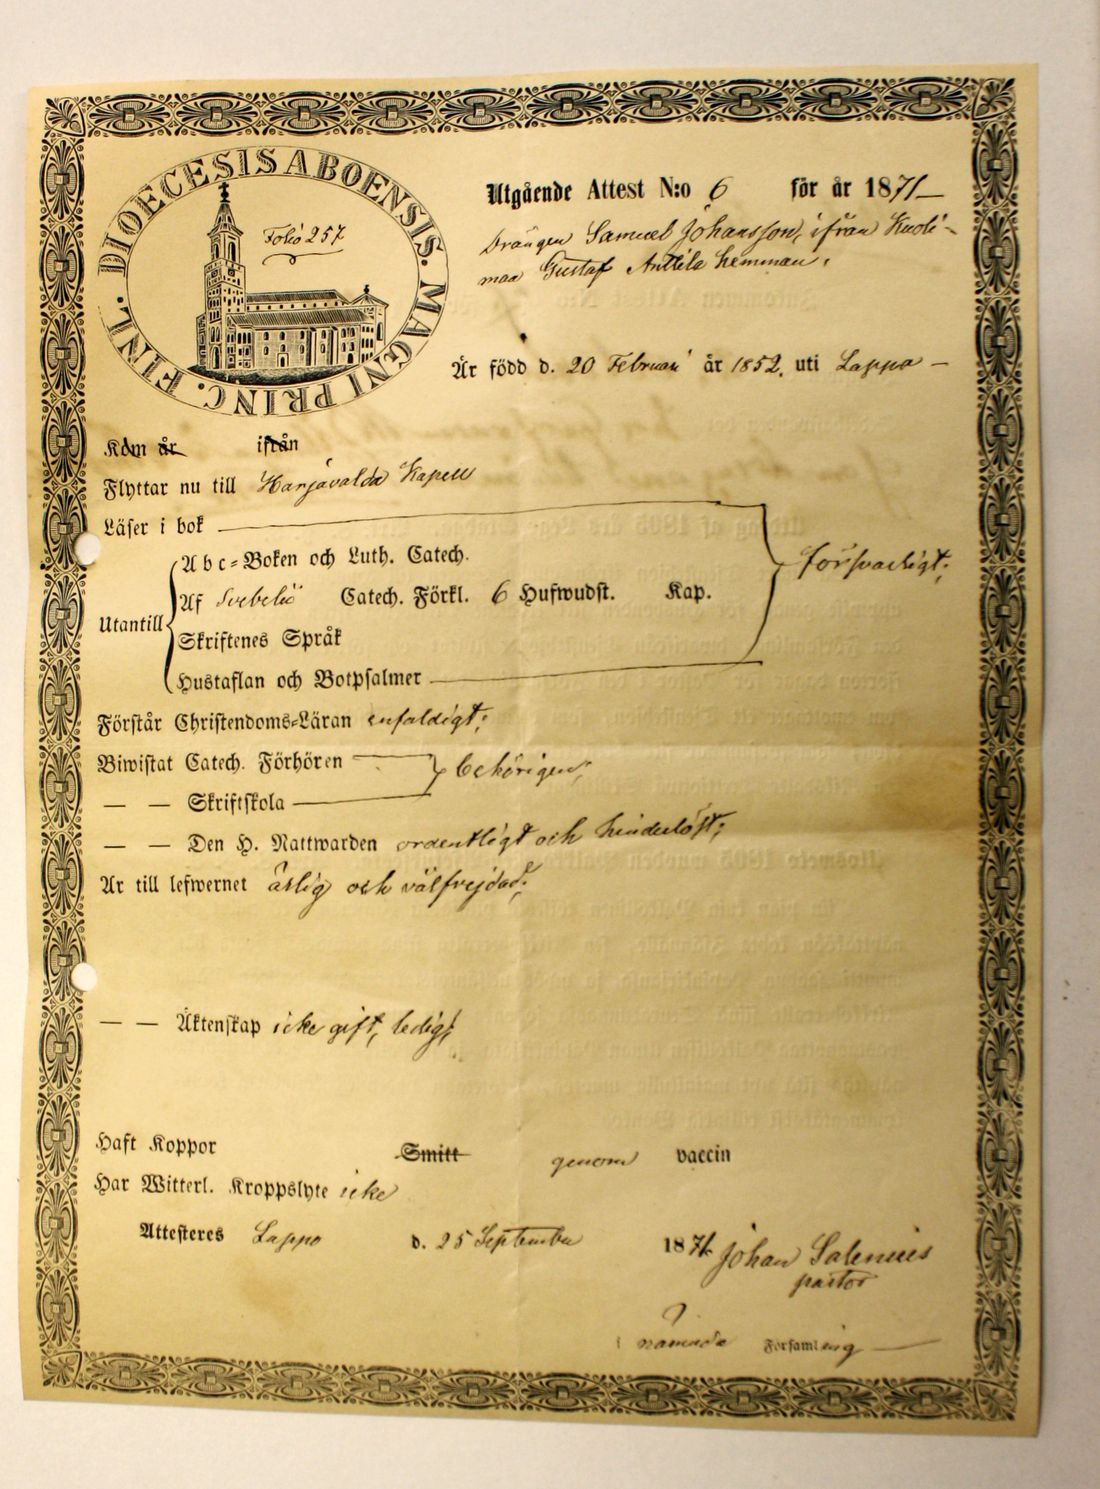 DIOECESIS ABOENSIS. MAGNI PRINC. FINL.
Folio 257
Utgående Attest N:o 6 för år 1871
Drängen Samuel Johansson, ifrån Kuoli-
maa Gustaf Anttila hemman,
Är född d. 20 Februari år 1852, uti Lappo
Kom år ifrån
Flyttar nu till Harjavalda Kapell
Läser i bok
försvarligt;
Utantill
Abc-Boken och Luth. Catech.
Af Svebelii Catech. Förkl. 6 Hufwudst. Kap.
Skriftenes Språk
Hustaflan och Botpsalmer
Förstår Christendoms-Läran enfaldigt;
Biwistat Catech. Förhören
behörigen
— — Skriftskola
— — Den H. Nattwarden ordentligt och hinderlöst;
Är till lefwernet ärlig och välfrejdad;
— — Äktenskap icke gift, ledig,
Haft Koppor Smitt genom vaccin
Har Witterl. Kroppslyte icke
Attesteres Lappo d. 25 September 1871 Johan Salenius
pastor
i namnda Församling